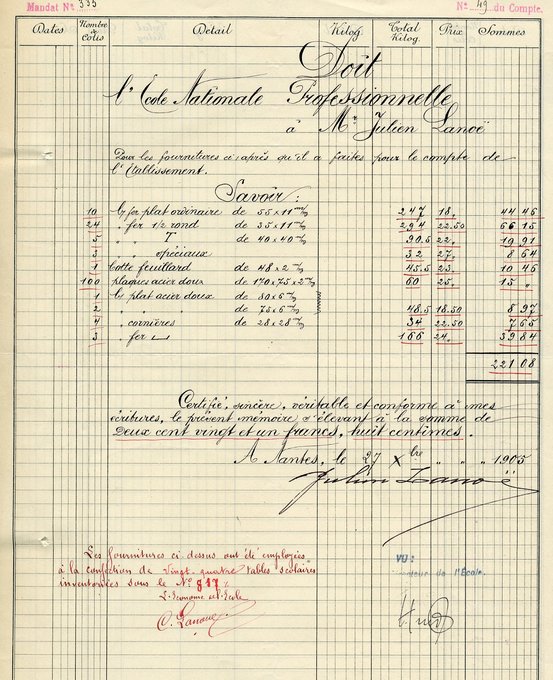 Mandat Nº 335
Nº 49 du Compte.
Dates Nombre de Colis Detail Kilog. Total Kilog. Prix Sommes
Doit
l'Ecole Nationale Professionnelle
à Mr Julien Lanoë
Pour les fournitures ci-après qu'il a faites pour le compte de
l'Etablissement.
Savoir :
10 fer plat ordinaire de 55 x 11 m/m 247 18 " 44 46
24 " fer 1/2 rond de 35 x 11 m/m 294 22.50 66 15
5 " " T de 40 x 40 m/m 90.5 22 " 19 91
3 " " spéciaux 32 27 " 8 64
1 botte feuillard de 48 x 2 m/m 45.5 23 " 10 46
100 plaques acier doux de 170 x 75 x 2 m/m 60 25 " 15 "
1 plat acier doux de 80 x 6 m/m
2 " " " de 75 x 6 m/m 48.5 18.50 8 97
4 " cornières de 28 x 28 m/m 34 22.50 7 65
3 " fer 166 24 " 39 84
221 08
Certifié, sincère, véritable et conforme à mes
écritures, le présent mémoire s'élevant à la somme de
Deux cent vingt et un francs, huit centimes.
A Nantes, le 27 Xbre " " 1905
Julien Lanoë
Les fournitures ci-dessus ont été employées
à la confection de vingt-quatre tables scolaires
inventoriées sous le Nº 817
L'Econome de l'Ecole
VU:
de l'École.